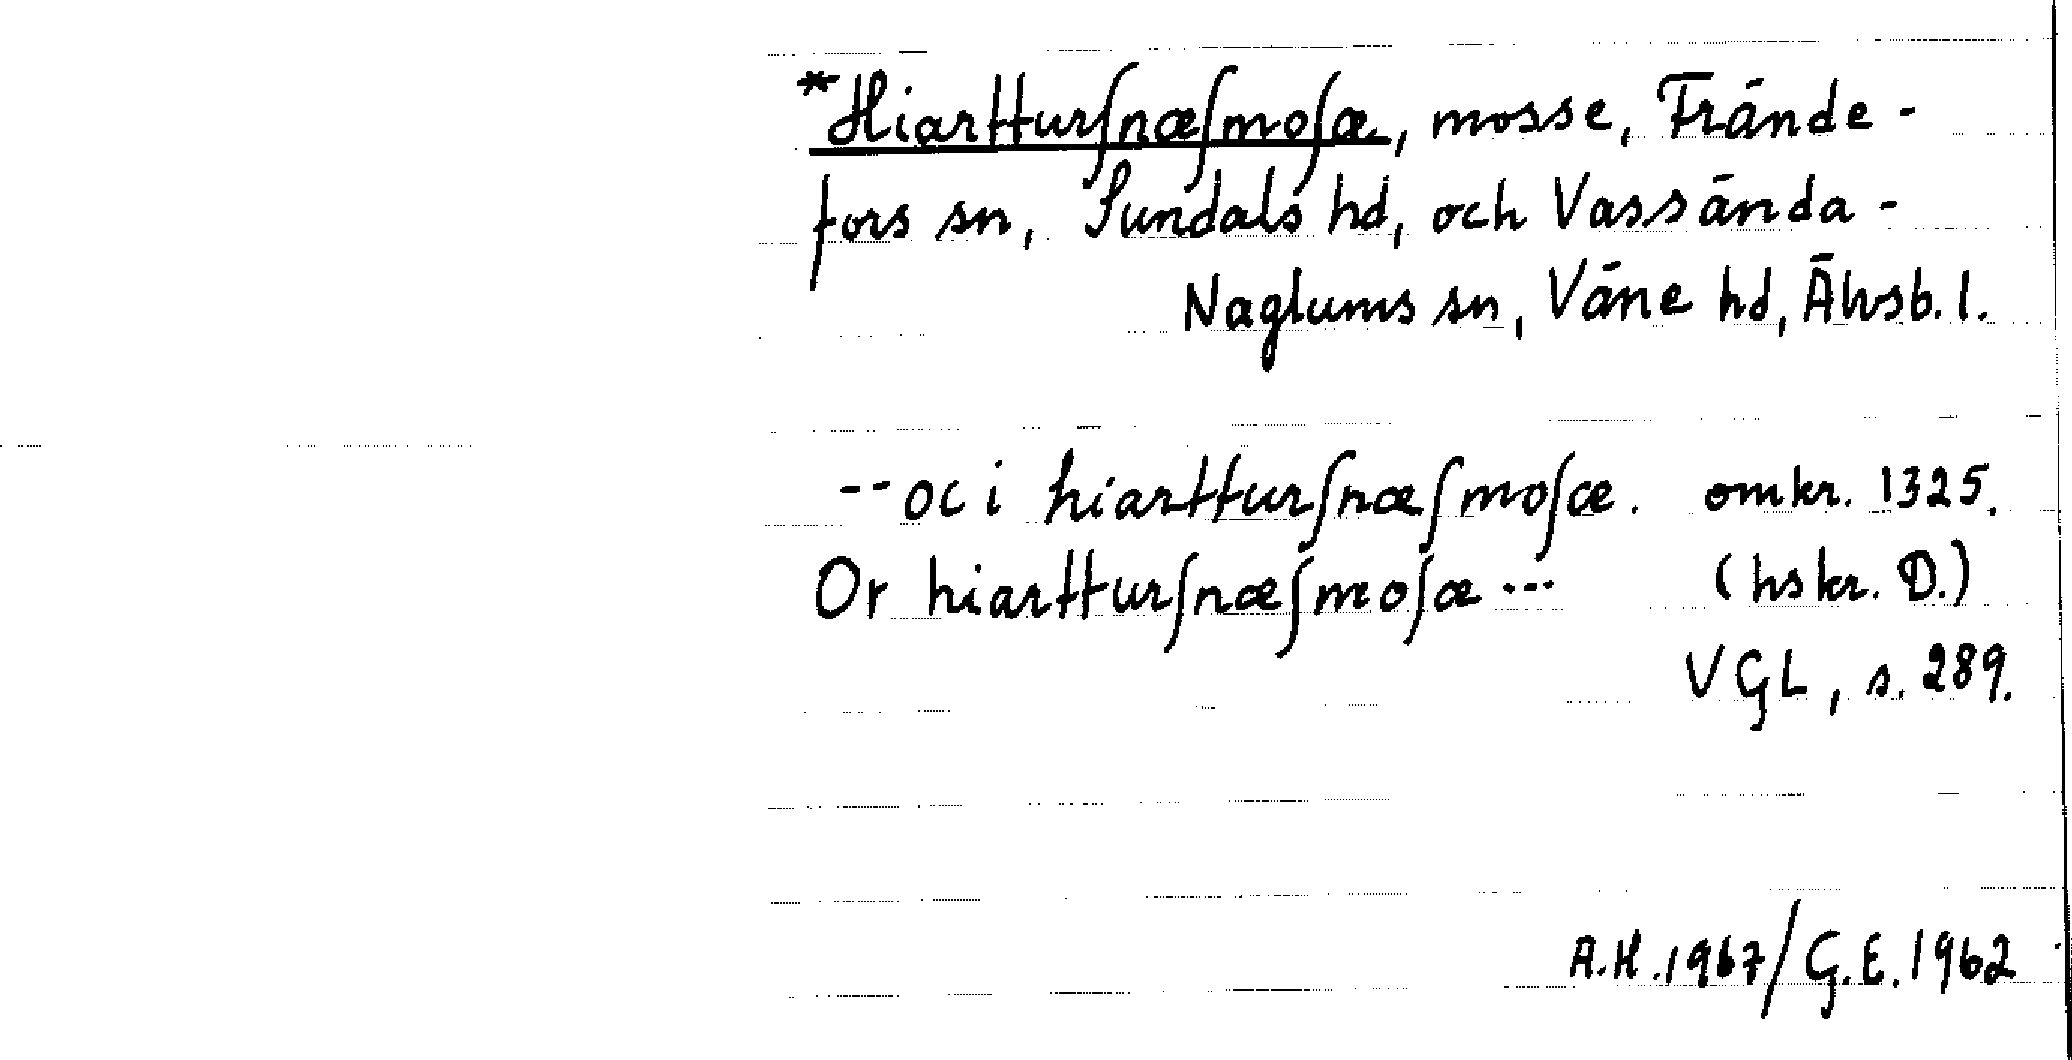 *Hiartturſnæſmoſæ, mosse, Frände-
fors sn, Sundals hd, och Vassända-
Naglums sn, Väne hd, Älvsb. l.
-- oc i hiartturſnæſmoſæ. omkr. 1325.
Or hiartturſnæſmoſæ --- (hskr. D.)
VGL, s. 289.
A.H. 1967/G.E. 1962